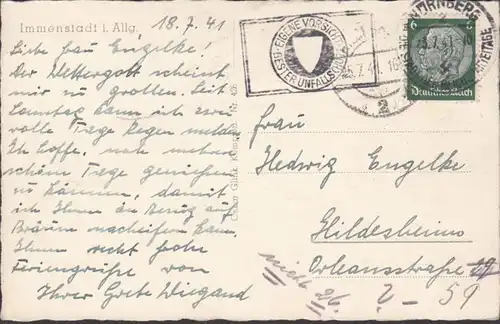 Immenstadt i. Allg.
18.7.41
Liebe Frau Engelke!
Der Wettergott scheint
mir zu grollen. Seit
Sonntag kann ich zwei
volle Tage Regen melden.
Ich hoffe, noch mehrere
schöne Tage geniessen
zu können, damit
ich Ihnen in Bezug auf
Bräune nacheifern kann.
Ihnen recht frohe
Feriengrüsse von
Ihrer Grete Wiegand
EIGENE VORSICHT
BESTER UNFALLSCHUTZ
NÜRNBERG
2
6 6
Deutsches Reich
Frau
Hedwig Engelke
Hildesheim
Orleansstraße
nicht 26
? - 59